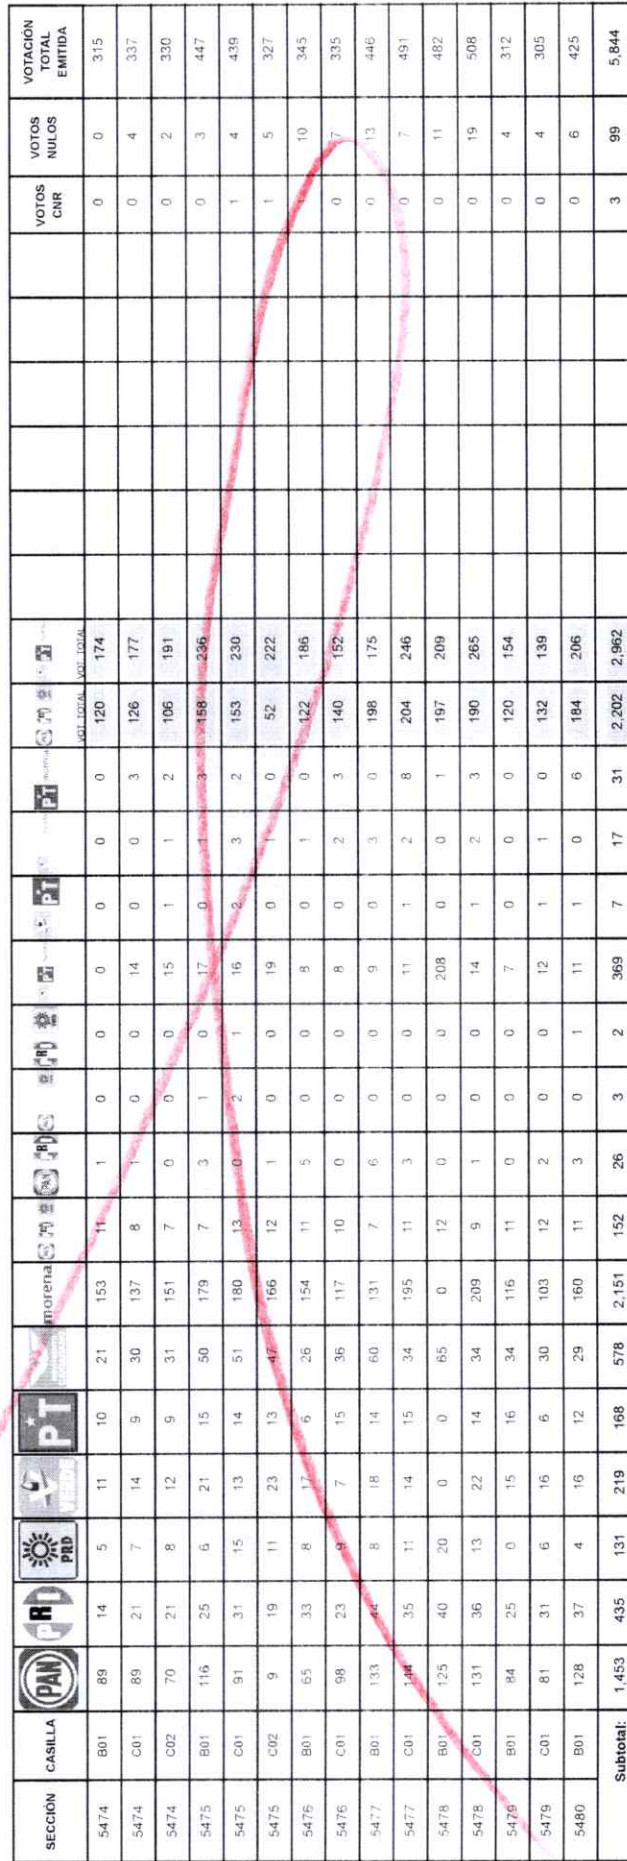 SECCIÓN CASILLA PAN PRI PRD VERDE PT morena PAN PRI PRD PAN PRI PAN PRD PRI PRD PT PT PT morena VOT TOTAL VOT TOTAL VOTOS CNR VOTOS NULOS VOTACIÓN TOTAL EMITIDA
5474 B01 89 14 5 11 10 21 153 11 1 0 0 0 0 0 0 120 174 0 0 315
5474 C01 89 21 7 14 9 30 137 8 1 0 0 14 0 0 3 126 177 0 4 337
5474 C02 70 21 8 12 9 31 151 7 0 0 0 15 1 1 2 106 191 0 2 330
5475 B01 116 25 6 21 15 50 179 7 3 1 0 17 0 1 3 158 236 0 3 447
5475 C01 91 31 15 13 14 51 180 13 0 2 1 16 2 3 2 153 230 1 4 439
5475 C02 9 19 11 23 13 47 166 12 1 0 0 19 0 1 0 52 222 1 5 327
5476 B01 65 33 8 17 6 26 154 11 5 0 0 8 0 1 0 122 186 1 10 345
5476 C01 98 23 9 7 15 36 117 10 0 0 0 8 0 2 3 140 152 0 7 335
5477 B01 133 44 8 18 14 60 131 7 6 0 0 9 0 3 0 198 175 0 13 446
5477 C01 144 35 11 14 15 34 195 11 3 0 0 11 1 2 8 204 246 0 7 491
5478 B01 125 40 20 0 0 65 0 12 0 0 0 208 0 0 1 197 209 0 11 482
5478 C01 131 36 13 22 14 34 209 9 1 0 0 14 1 2 3 190 265 0 19 508
5479 B01 84 25 0 15 16 34 116 11 0 0 0 7 0 0 0 120 154 0 4 312
5479 C01 81 31 6 16 6 30 103 12 2 0 0 12 1 1 0 132 139 0 4 305
5480 B01 128 37 4 16 12 29 160 11 3 0 1 11 1 0 6 184 206 0 6 425
Subtotal: 1,453 435 131 219 168 578 2,151 152 26 3 2 369 7 17 31 2,202 2,962 3 99 5,844